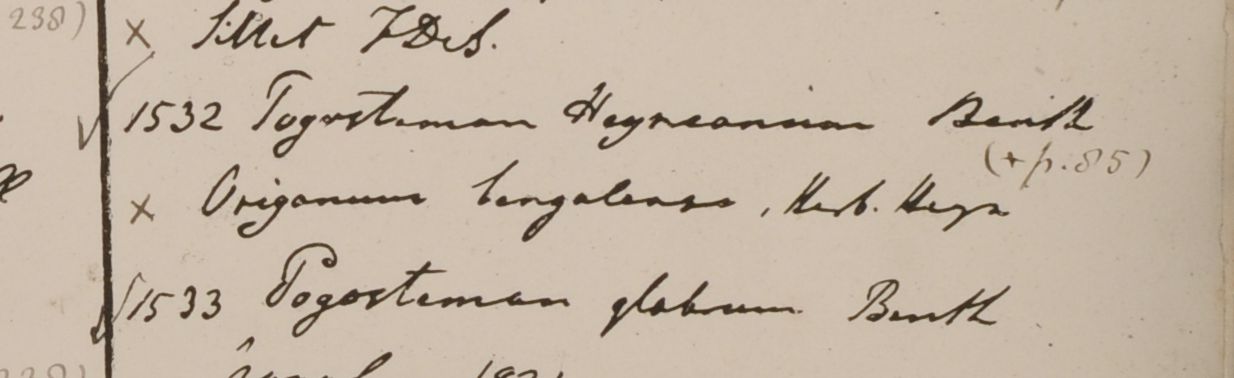 238)
× Sillet F.De S.
1532 Pogostemon Heyneanum Benth
(+p.85)
× Origanum bengalense, Herb. Heyn
1533 Pogostemon glabrum Benth